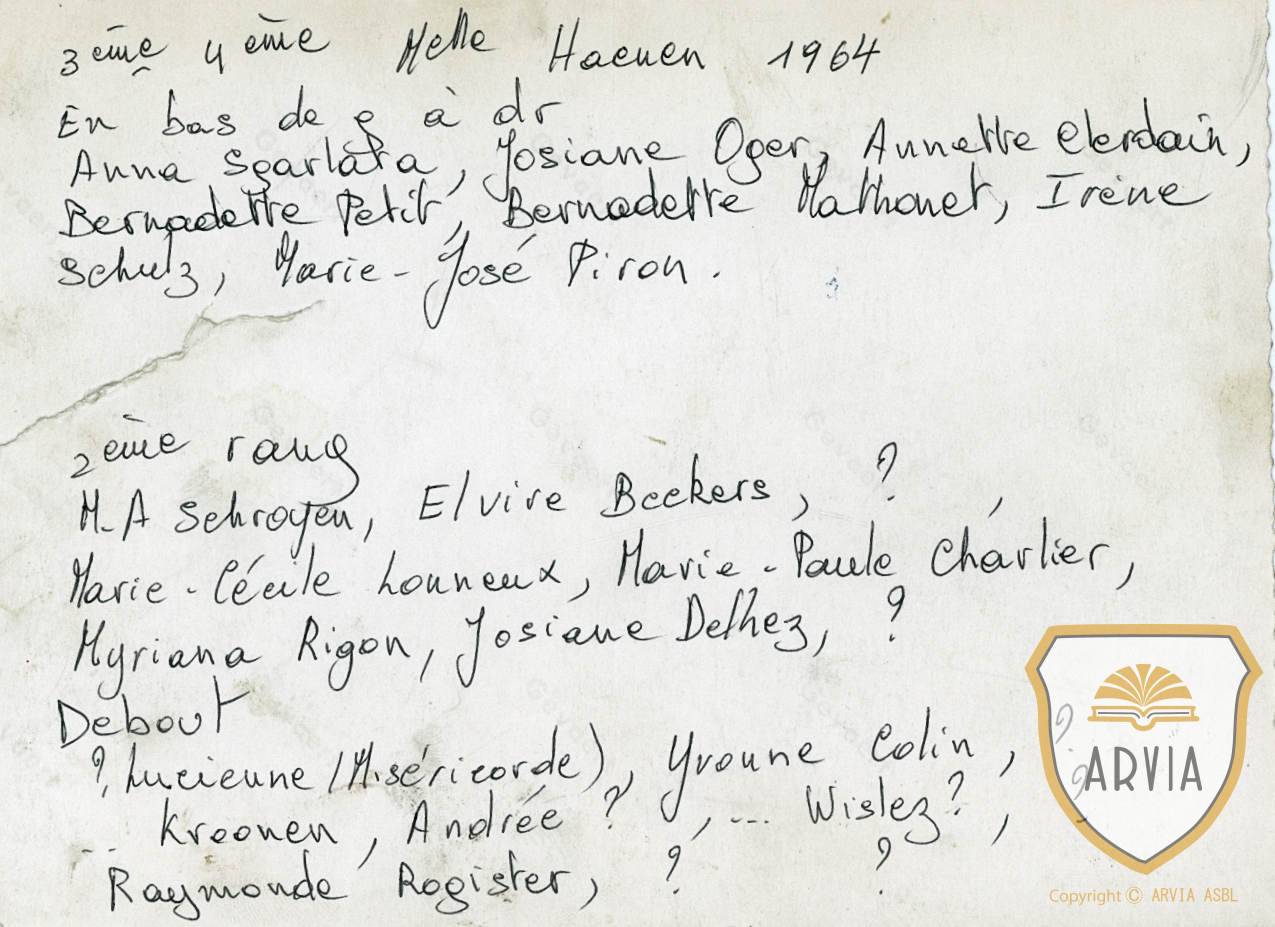 3ème 4ème Melle Haenen 1964
En bas de g à dr
Anna Sgarlata, Josiane Oger, Annette Clerdain,
Bernadette Petit, Bernadette Mathonet, Irène
Schulz, Marie-José Piron.
2ème rang
M-A Schroyen, Elvire Beckers, ? ,
Marie-Cécile Lonneux, Marie-Paule Charlier,
Myriana Rigon, Josiane Delhez, ?
Debout
?, Lucienne (Miséricorde), Yvonne Colin, ?
... Kroonen, Andrée ? , ... Wislez?, ?
Raymonde Rogister, ? ?
ARVIA
Copyright © ARVIA ASBL